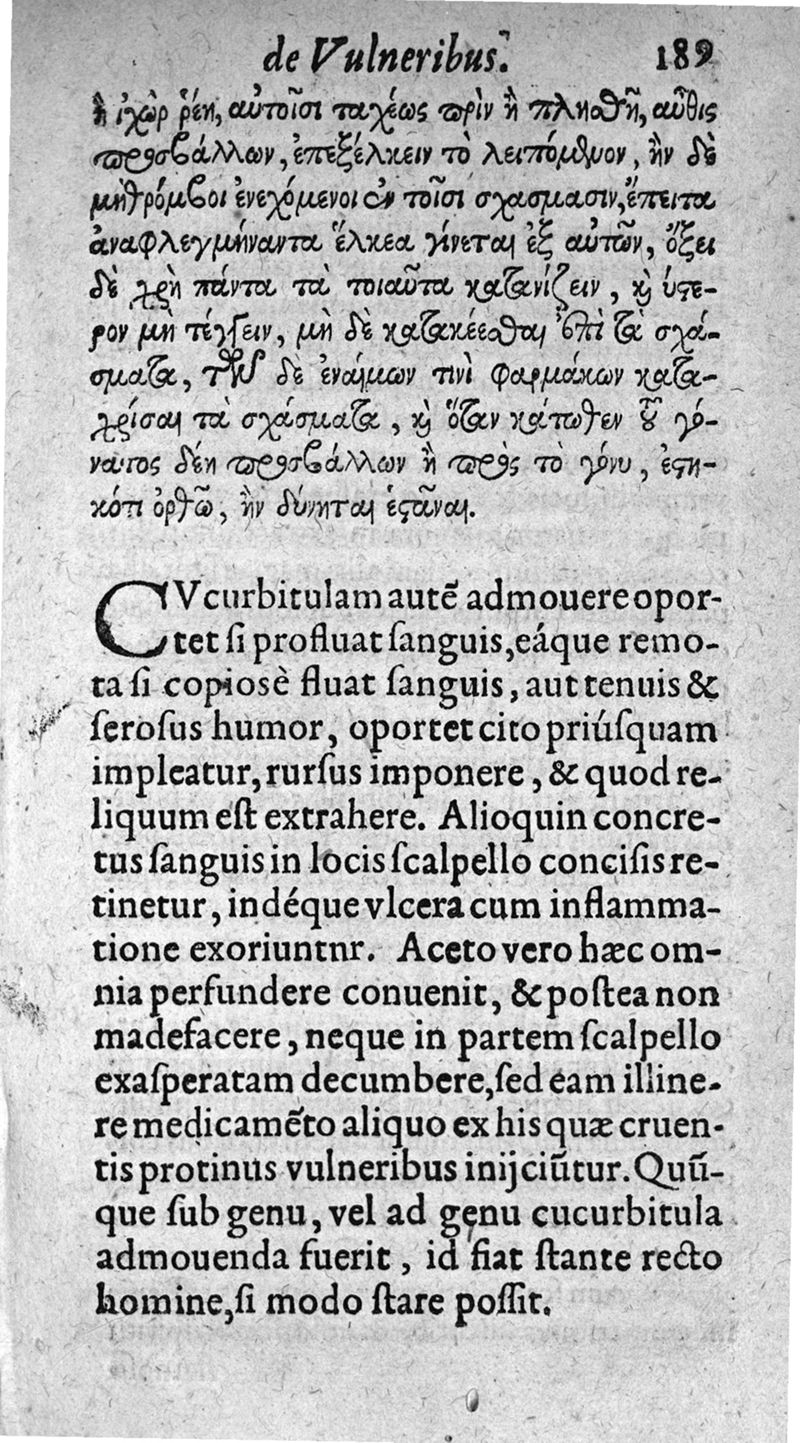 de Vulneribus. 189
ἢ ἰχὼρ ῥέῃ, αὐτοῖσι ταχέως πρὶν ἢ πλησθῇ, αὖθις
προσβάλλων, ἐπεξέλκειν τὸ λειπόμενον, ἢν δὲ
μὴ θρόμβοι ἐνεχόμενοι ἐν τοῖσι σχασμασιν, ἔπειτα
ἀναφλεγμήναντα ἕλκεα γίνεται ἐξ αὐτῶν, ὄξει
δὲ χρὴ πάντα τὰ τοιαῦτα κατανίζειν, καὶ ὑστε-
ρον μὴ τέγγειν, μὴ δὲ κατακέεσθαι ἐπὶ τὰ σχά-
σματα, τῶν δὲ ἐναίμων τινὶ φαρμάκων κατα-
χρῖσαι τὰ σχάσματα, καὶ ὅταν κάτωθεν τοῦ γό-
νατος δέῃ προσβάλλων ἢ πρὸς τὸ γόνυ, ἑστη-
κότι ὀρθῶ, ἢν δύνηται ἑστᾶναι.
CVcurbitulam autẽ admouere opor-
tet ſi profluat ſanguis, eáque remo-
ta ſi copiosè fluat ſanguis, aut tenuis &
ſeroſus humor, oportet cito priúſquam
impleatur, rurſus imponere, & quod re-
liquum eſt extrahere. Alioquin concre-
tus ſanguis in locis ſcalpello conciſis re-
tinetur, indéque vlcera cum inflamma-
tione exoriuntnr. Aceto vero hæc om-
nia perfundere conuenit, & poſtea non
madefacere, neque in partem ſcalpello
exaſperatam decumbere, ſed eam illine-
re medicamẽto aliquo ex his quæ cruen-
tis protinus vulneribus inijciũtur. Quũ-
que ſub genu, vel ad genu cucurbitula
admouenda fuerit, id fiat ſtante recto
homine, ſi modo ſtare poſſit.